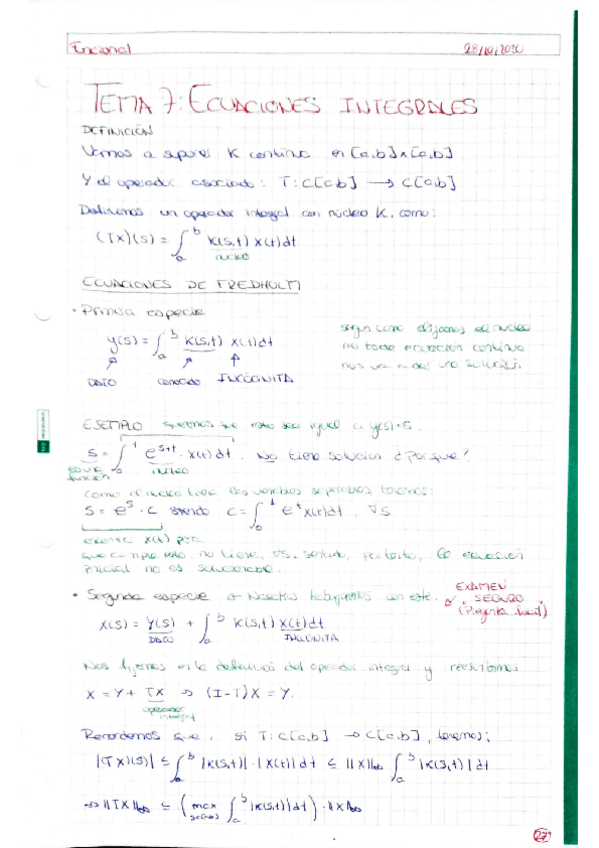 Funcional 28/10/2020
TEMA 7: ECUACIONES INTEGRALES
DEFINICIÓN
Vamos a suponer K continua en [a,b]x[a,b]
Y el operador asociado: T: C[a,b] → C[a,b]
Definimos un operador integral con núcleo K, como:
(Tx)(s) = ∫_a^b K(s,t) x(t) dt
núcleo
ECUACIONES DE FREDHOLM
• Primera especie
y(s) = ∫_a^b K(s,t) x(t) dt
DATO conocido INCÓGNITA
según como elijamos el núcleo
no toda ecuación continua
nos va a dar una solución
EJEMPLO queremos que esto sea igual a y(s)=s.
s = ∫_0^1 e^{s+t} x(t) dt. No tiene solución ¿Por qué?
función núcleo
Como el núcleo tiene las variables separables tenemos:
s = e^s · c siendo c = ∫_0^1 e^t x(t) dt, ∀s
x(t) para
que cumpla esto no tiene, ∀s, sentido, por tanto, la ecuación
inicial no es solucionable.
• Segunda especie Nosotros trabajaremos con este.
EXAMEN
SEGURO
(Pregunta fácil)
x(s) = y(s) + ∫_a^b K(s,t) x(t) dt
DATO INCÓGNITA
Nos fijamos en la definición del operador integral y reescribimos
x = y + Tx → (I-T)x = y.
operador
integral
Recordemos que, si T: C[a,b] → C[a,b], tenemos:
|(Tx)(s)| ≤ ∫_a^b |K(s,t)| · |x(t)| dt ≤ ||x||∞ ∫_a^b |K(s,t)| dt
⇒ ||Tx||∞ ≤ (max ∫_a^b |K(s,t)| dt) · ||x||∞
27